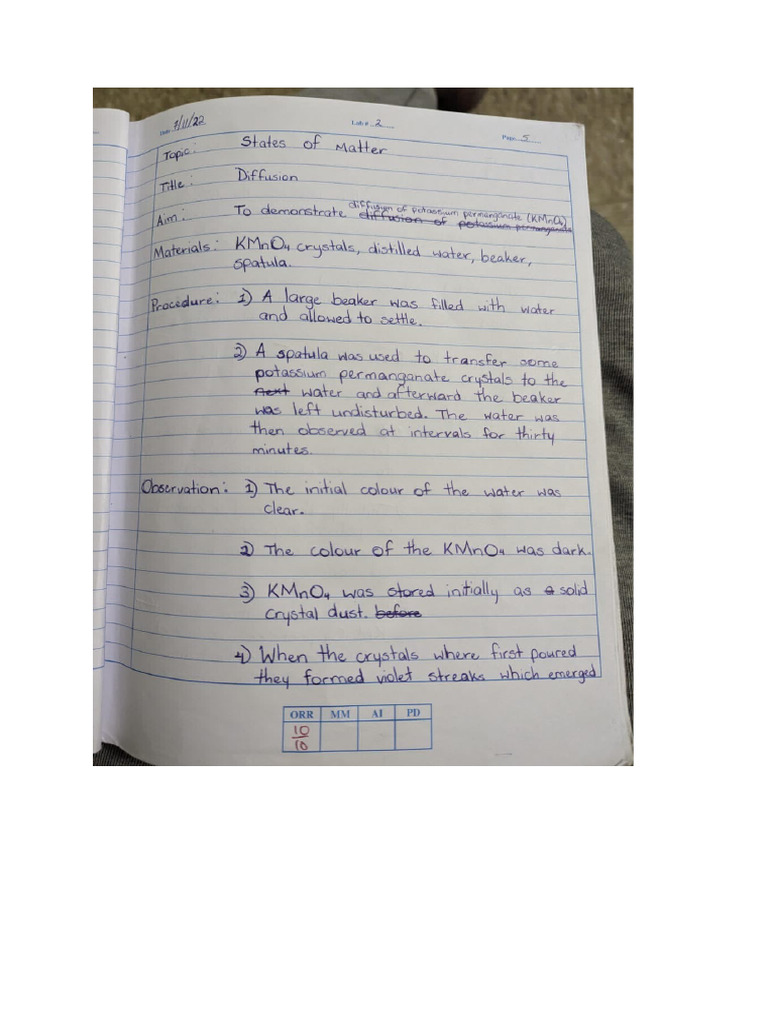 Date 7/11/22 Lab # 2 Page 5
Topic: States of Matter
Title: Diffusion
diffusion of potassium permanganate (KMnO4)
Aim: To demonstrate diffusion of potassium permanganate
Materials: KMnO4 crystals, distilled water, beaker,
spatula.
Procedure: 1) A large beaker was filled with water
and allowed to settle.
2) A spatula was used to transfer some
potassium permanganate crystals to the
next water and afterward the beaker
was left undisturbed. The water was
then observed at intervals for thirty
minutes.
Observation: 1) The initial colour of the water was
clear.
2) The colour of the KMnO4 was dark.
3) KMnO4 was stored initially as a solid
crystal dust. before
4) When the crystals where first poured
they formed violet streaks which emerged
ORR MM AI PD
10
10